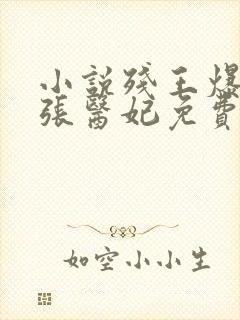 小說殘王爆
張醫妃免費
如空小小生